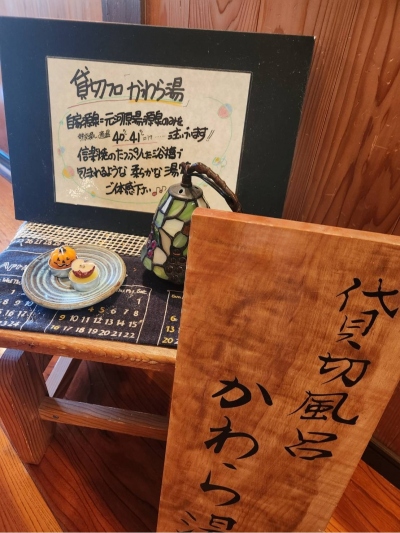 貸切フロ かわら湯
自家源泉=元河原湯源泉のみを
40℃〜41℃
注いでいます!!
信楽焼のたっぷりとした浴槽で
包まれるような 柔らかな湯を
ご体感下さい♪
貸切風呂
かわら湯
26 27 28 29 30
Sat
1
8
9 10 11 12 13 14 15
16 17 18 19 20 21 22